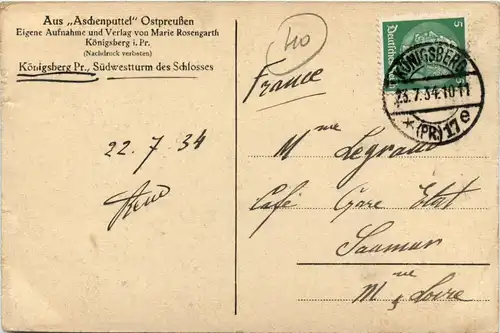 Aus „Aschenputtel" Ostpreußen
Eigene Aufnahme und Verlag von Marie Rosengarth
Königsberg i. Pr.
(Nachdruck verboten)
Königsberg Pr., Südwestturm des Schlosses
22.7.34
40
France
5
Deutsches Reich
KÖNIGSBERG
23.7.34.10-11
* (PR) 17e
Mme Legrand
Café Gare Etat
Saumur
Mne & Loire